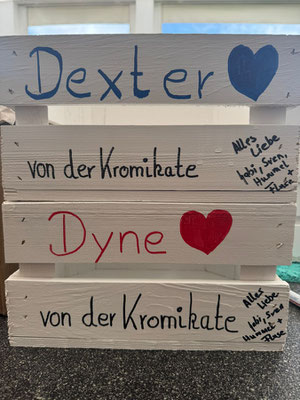 Dexter
von der Kromikate
Alles
Liebe
Gabi, Sven,
Hummel +
Flase
Dyne
von der Kromikate
Alles
Liebe
Gabi, Sven
Hummel +
Flase